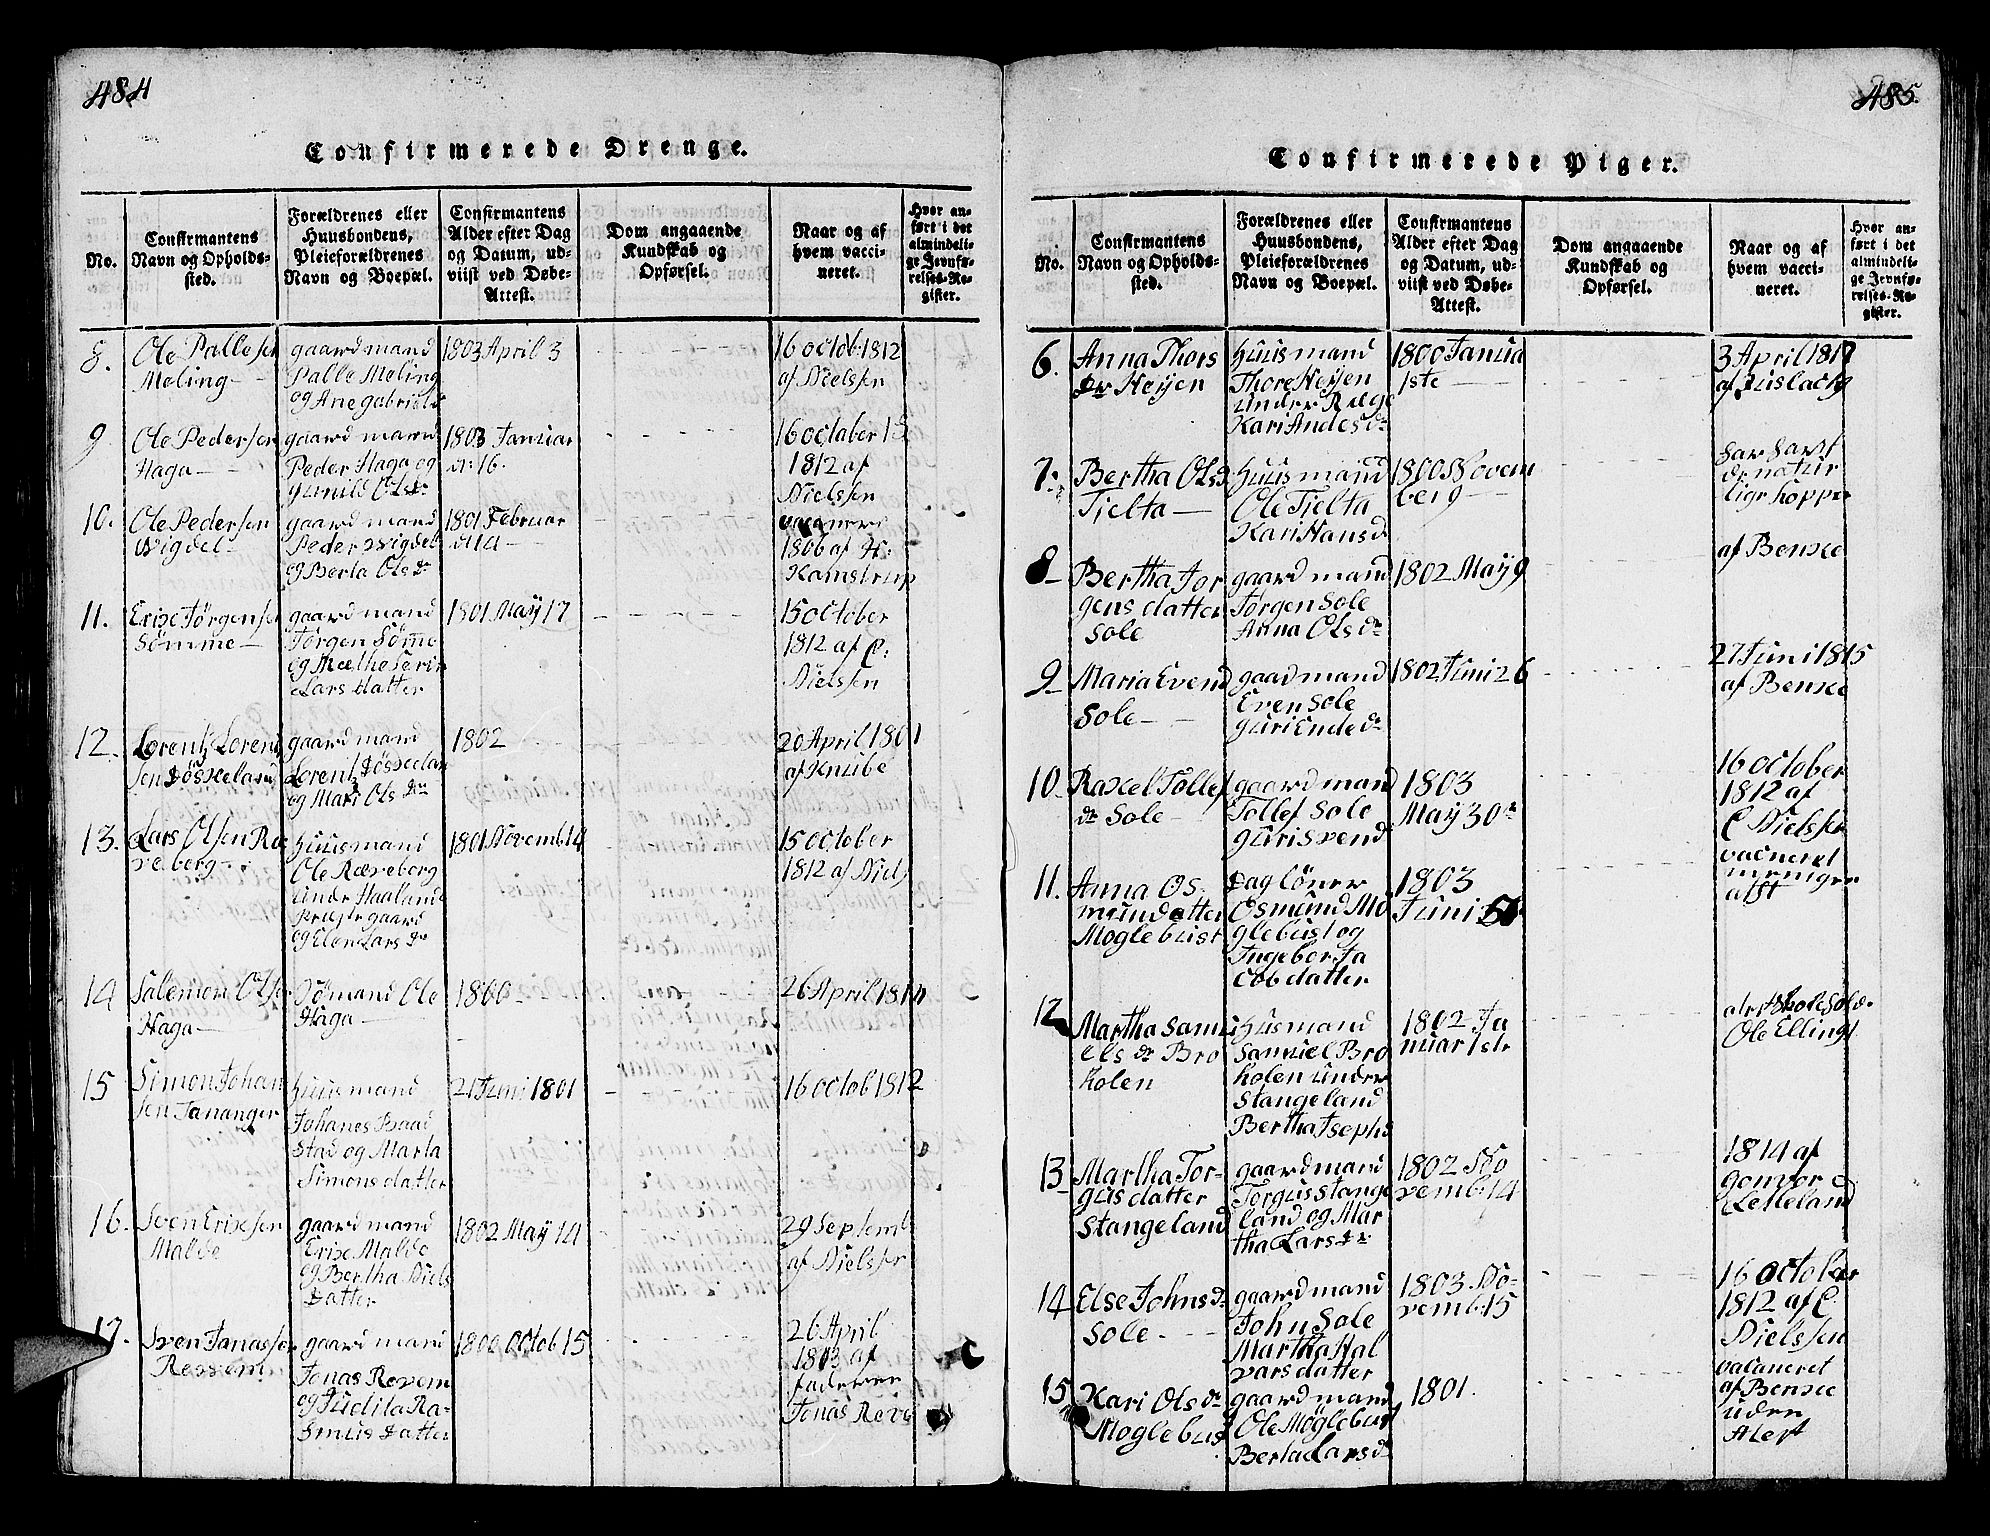 484
Confirmerede Drenge.
No.
Confirmantens
Navn og Opholds-
sted.
Forældrenes eller
Huusbondens,
Pleieforældrenes
Navn og Boepæl.
Confirmantens
Alder efter Dag
og Datum, ud-
viist ved Døbe-
Attest.
Dom angaaende
Kundskab og
Opførsel.
Naar og af
hvem vacci-
neret.
Hvor an-
ført i det
almindeli-
ge Jevnfø-
relses-Re-
gister.
8.
Ole Pallesen
Meling
gaardmand
Palle Meling
og Ane gabriels
1803 April 3
16 octob 1812
af Nielsen
9.
Ole Pedersen
Haga
gaardmand
Peder Haga og
gunild Olsdr
1803 Januar
d: 16.
16 october 15
1812 af
Nielssen
10.
Ole Pedersen
Wigdel
gaardmand
Peder Wigdel
og Berta Olsdr
1801 Februar
d 14
vacinere
1806 af H:
Kamstrup
11.
Erixe Jørgensen
Sömme
gaardmand
Jørgen Sömme
og Malhe Serin
Lars datter
1801 May 17
15 october
1812 af C:
Nielssen
12.
Lorentz Lorent
sen Jösxeland
gaardmand
Lorentz Jösxelan
og Mari Ols dr
1802
20 April 1801
af Knube
13.
Lars Olsen Ræ
veberg
Huusmand
Ole Ræveberg
under Haaland
præstegaard
og Elen Lars dr
1801 Novemb 14
15 october
1812 af Niels
14
Salemon Olsen
Haga
Sömand Ole
Haga
1800
26 April 1814
15
Simon Johan
sen Tananger
Huusmand
Johanes Baad
stad og Marta
Simons datter
21 Juni 1801
16 octob 1812
16.
Sven Erixsen
Malde
gaardmand
Erixe Malde
og Bertha Niels
Datter
1802 May 14
29 Septemb
af Nielssen
17.
Sven Janassen
Revem
gaardmand
Jonas Revem
og Judita Ra-
smus Datter
1800 Octob 15
26 April
1803 af
faderen
Jonas Reve
485.
Confirmerede Piger.
No.
Confirmantens
Navn og Opholds-
sted.
Forældrenes eller
Huusbondens,
Pleieforældrenes
Navn og Boepæl.
Confirmantens
Alder efter Dag
og Datum, ud-
viist ved Døbe-
Attest.
Dom angaaende
Kundskab og
Opførsel.
Naar og af
hvem vacci-
neret.
Hvor an-
ført i det
almindeli-
ge Jevnfø-
relses-Re-
gister.
6.
Anna Thors
dr Heyen
Huusmand
Thore Heyen
under Ræge
Kari Andesdr
1800 Janua
1ste
3 April 1817
7.
Bertha Olsd
Tjelta
Huusmand
Ole Tjelta
Kari Hansd
1800 Novem
ber 9
har havt
de natur
ligr kopper
8
Bertha Jor
gensdatter
Sole
gaardmand
Jørgen Sole
Anna Olsdr
1802 May 9
af Benxe
9
Maria Evend
Sole
gaadmand
Even Sole
guri Endedr
1802 Juni 26
27 Juni 1815
af Benxe
10
Raxel Tollef
dr Sole
gaardmand
Tollef Sole
guri Svend
1803
May 30te
16 october
1812 af
C Nielssen
11.
Anna Os
mundatter
Moglebust
Dag löner
Osmund Mo
glebust og
Ingebor Ja
cob datter
1803
Juni
vacneret
12
Martha Samu
els dr Bro
holen
Husmand
Samuel Bro
holen under
Stangeland
Bertha Jsephs
1802 Ja
nuar 1ste
Ole Ellings
13
Martha Tor-
gusdatter
Stangeland
gaardmand
Torgus Stange
land og Mar
tha Larsdr
1802 No
vemb 14
1814 af
gonvor
Lelleland
14
Else Johnsdr
Sole
gaardmand
John Sole
Martha Hal
varsdatter
1803 No-
vemb 15
16 October
1812 af C
Nielssen
15
Kari Olsdr
Moglebust
gaardmand
Ole Möglebust
Berta Larsd
1801.
vacaneret
af Benxe
uden
Atest